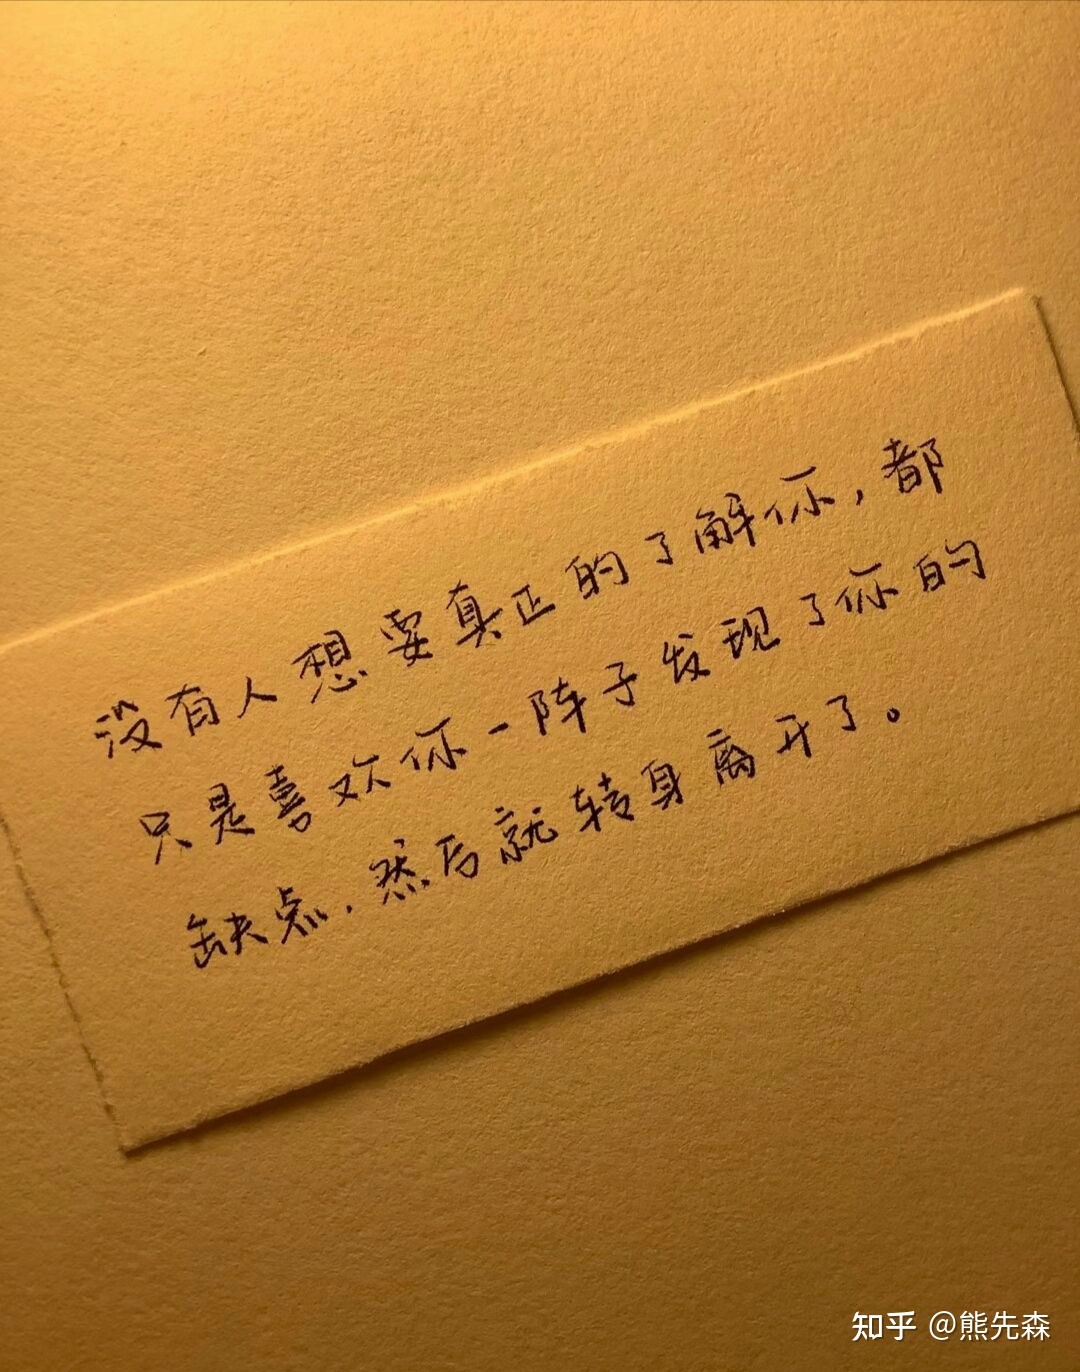 没有人想要真正的了解你，都
只是喜欢你一阵子发现了你的
缺点，然后就转身离开了。
知乎 @熊先森